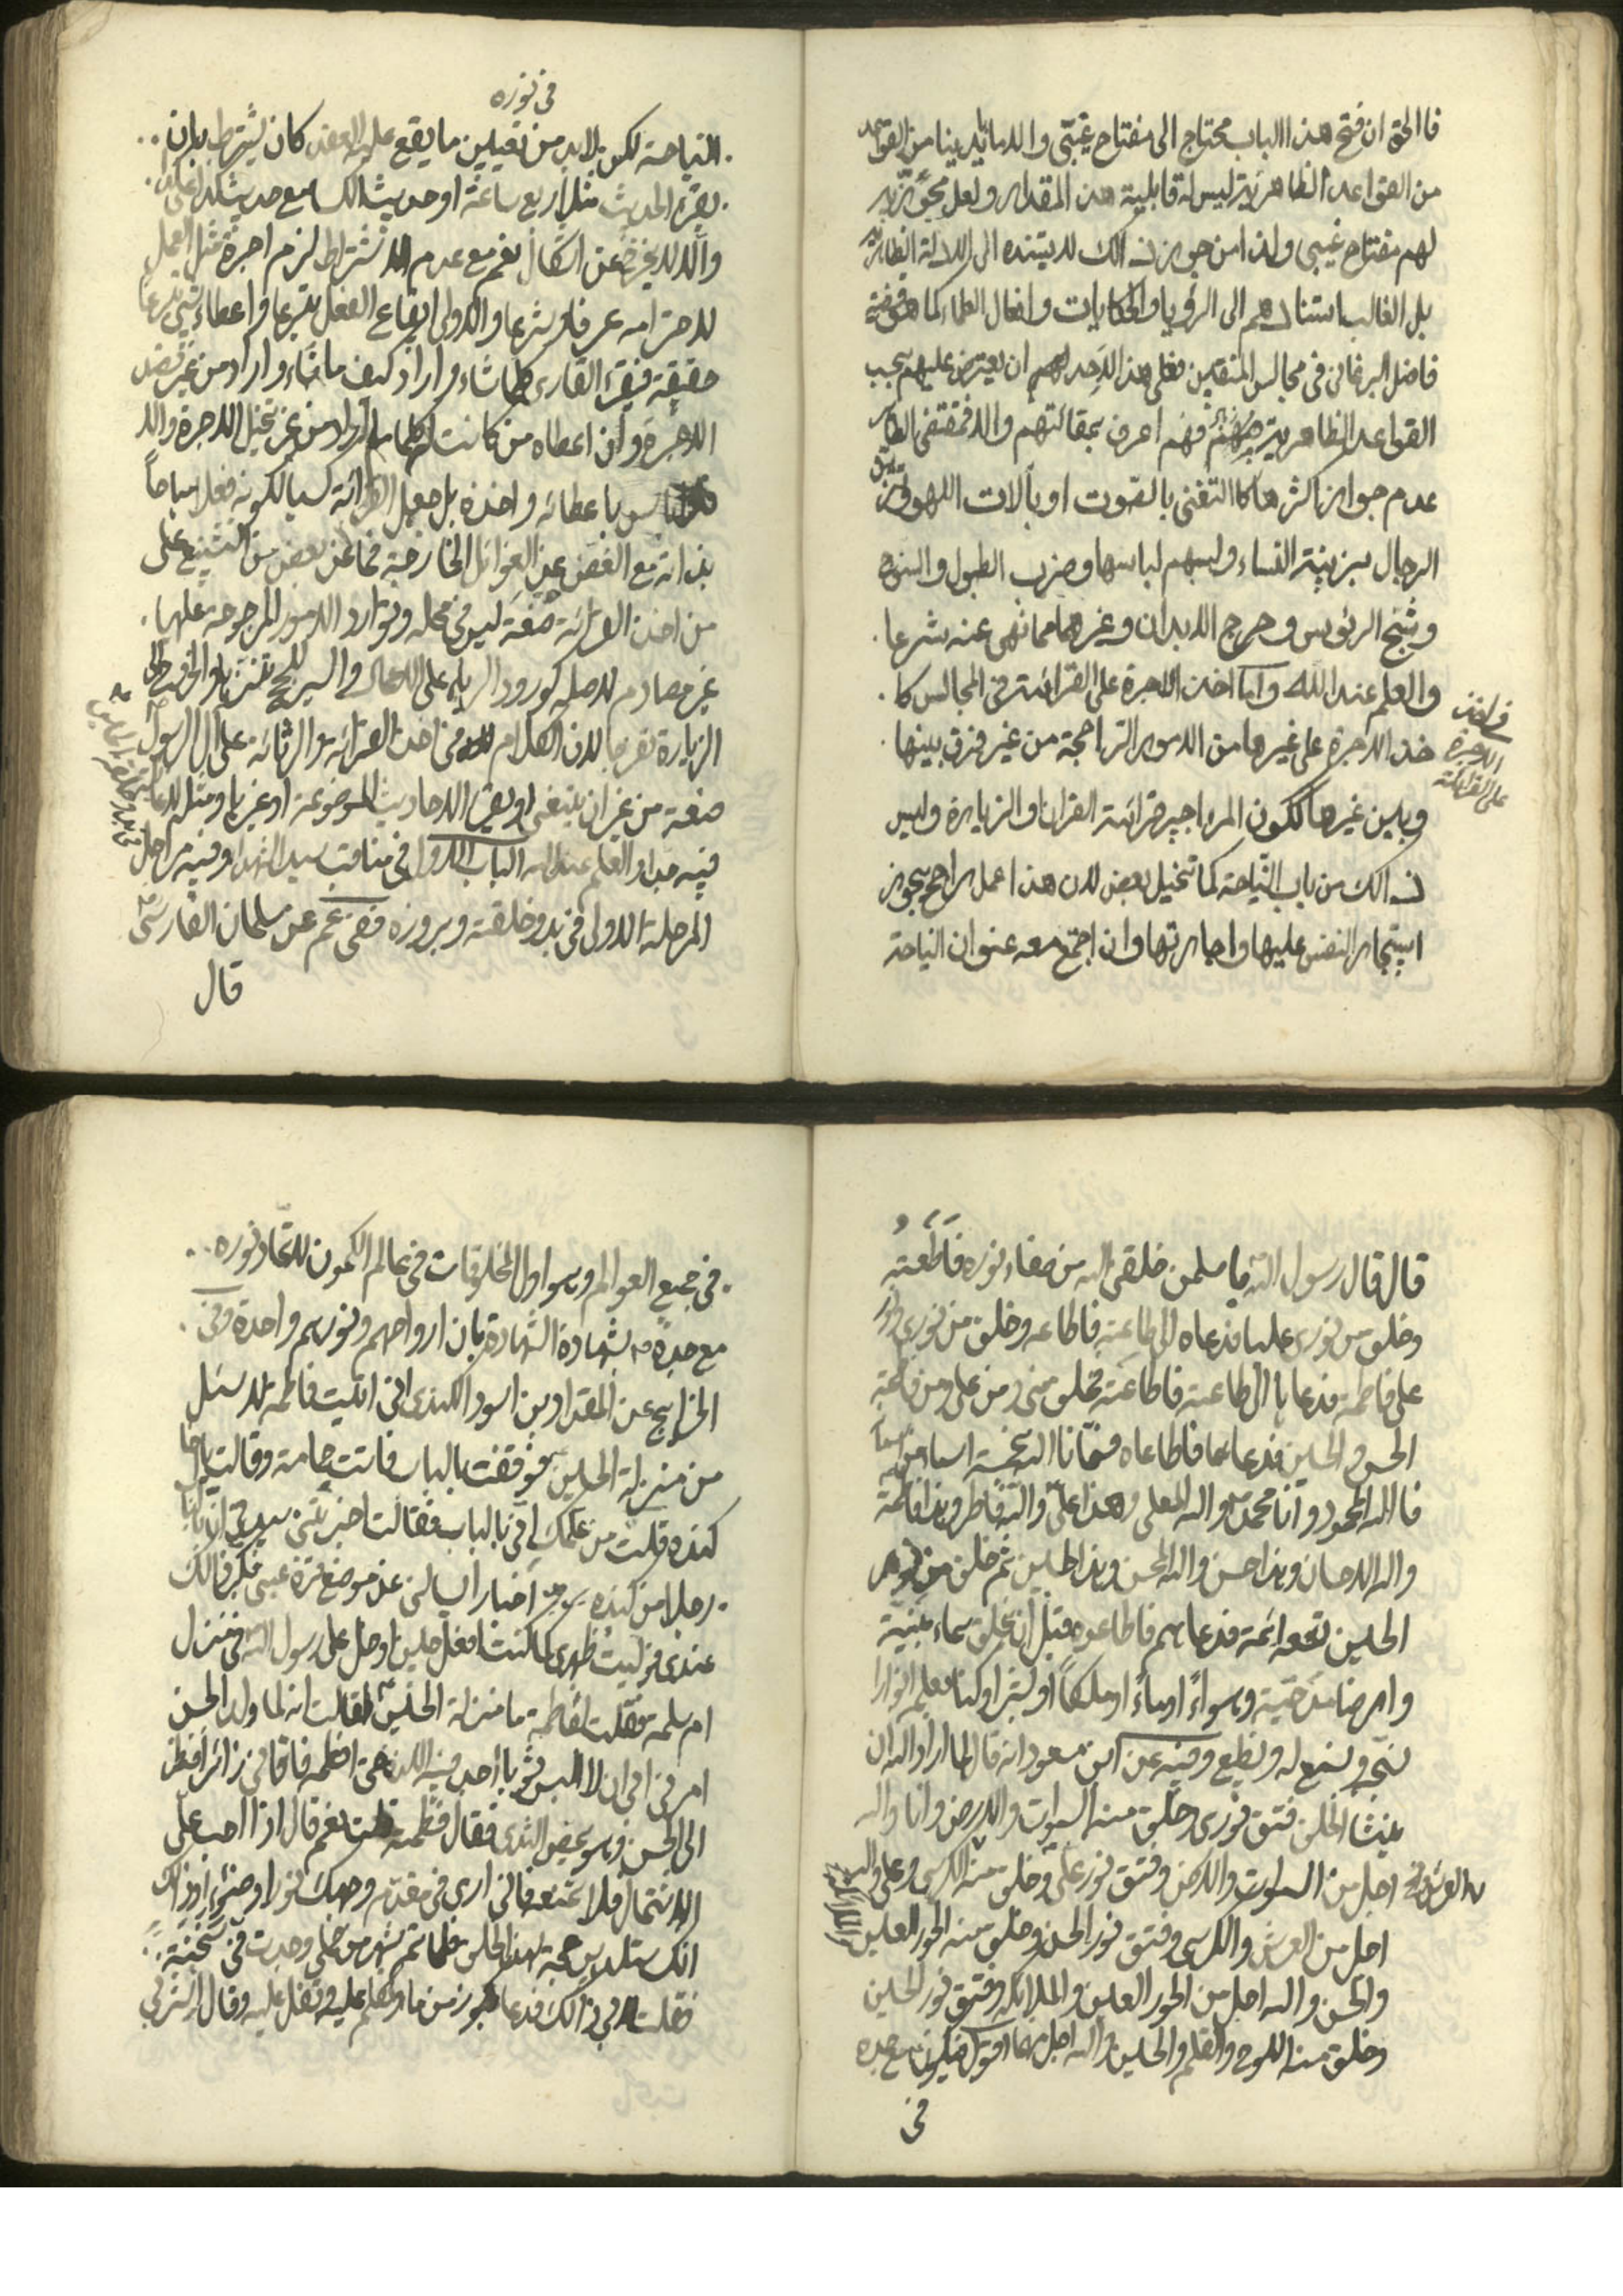 فالحق ان فتح هذا الباب محتاج الى مفتاح غيبى والا ما بايدينا من القواعد
من القواعد الظاهرية ليس له قابلية هذا المقدار ولعل مجوزيه
لهم مفتاح غيبى ولذا من جوز ذلك لا يستنده الى الادلة الظاهرية
بل الغالب استنادهم الى الرؤيا والحكايات وافعال العلماء كما هو
فاضل البرغانى فى مجالس المتقين فعلى هذا لاحد لهم ان يعترض عليهم بحسب
القواعد الظاهرية فهم اعرف بمقالتهم والا فمقتضى الظاهر
عدم جواز اكثرها كالتغنى بالصوت او بآلات اللهو
الرجال بزينة النساء ولبسهم لباسها وضرب الطبول
وشج الرؤس وجرح الابدان وغيرها مما نهى عنه شرعا
والعلم عند الله واما اخذ الاجرة على القرائة فى المجالس كا
خذ الاجرة على غيرها من الامور الراجحة من غير فرق بينها
وبين غيرها ككون المراجير قرائة القران والزيارة وليس
ذلك من باب النياحة كما تخيل بعض لان هذا عمل راجح يجوز
استيجار النفس عليها واجارتها وان اجتمع معه عنوان النياحة
فى اخذ
الاجرة
على القرائة
فى نوره
النياحة لكن لابد من تعيين ما يقع عليه العقد كان يشترط بان
يقرء الحديث مثلا ربع ساعة او حديث الكساء مع حديث
والا لا يخرج عن اشكال نعم مع عدم الاشتراط لزم اجرة مثل العمل
لاحترامه عرفا وشرعا والاولى ايقاع الفعل تبرعا واعطاء شئ تبرعا
حقيقة فيقرء القارى كلما شاء واراد كيف ما شاء واراد من غير قصد
الاجرة وان اعطاه من كانت له كلما اراد من غير تخيل الاجرة والا
باس باعطائه واخذه بل جعل القرائة كسبا لكونه فعلا مباحاً
بذاته مع الغض عن العوائل الخارجية فما عن بعض من التشنيع على
من اخذ القرائة صنعة ليس فى محله وتوارد الامور المرجوحة عليها
غير مصادم لاصله كورود الرياء على الاعمال والسير للحج تنزيها
الزيارة تفرجا لان الكلام فى اخذ القرائة والرثائة على ال الرسول
صنعة من غير ان يتغنى او يقرء الاحاديث الموضوعة او غيرها ومثله لا
فيه جدا والعلم عند الله الباب الاول فى مناقب سيد الشهداء وفيه مراحل
المرحلة الاولى فى بدو خلقته وبروزه ففى عم عن سلمان الفارسى
قال
قال قال رسول الله يا سلمن خلقنى الله من صفاء نوره فاطعته
وخلق من نورى عليا فدعاه الى طاعته فاطاعه وخلق من نورى ونور
على فاطمة فدعاها الى طاعته فاطاعته وخلق منى ومن على ومن فاطمة
الحسن والحسين فدعاهما فاطاعاه فسمانا الله بخمسة اسماء من اسمائه
فالله المحمود وانا محمد والله العلى وهذا على والله فاطر وهذا فاطمة
والله الاحسان وهذا حسن والله المحسن وهذا الحسين ثم خلق من نور
الحسين تسعة ائمة فدعاهم فاطاعوه قبل ان يخلق سماء مبنية
وارضا مدحية وهواءً اوماءً او ملكاً او بشرا وكنا بعلمه انوارا
نسبحه ونسمع له ونطيع وفيه عن ابن مسعود انه قال لما اراد الله ان
ينشا الخلق فتق نورى وخلق منه السموات والارض وانا والله
اجل من السموات والارض وفتق نور على وخلق منه الكرسى وعلى والله
العرش و
اجل من العرش والكرسى وفتق نور الحسن وخلق منه الحور العين
والحسن والله اجل من الحور العين والملائكة وفتق نور الحسين
وخلق منه اللوح والقلم والحسين والله اجل منها اقول فيكون مع جده
فى
فى جميع العوالم وهو اول المخلوقات فى عالم الكمون لاتحاد نوره
مع جده بشهادة الشهادة بان ارواحهم ونورهم واحدة وفى
الخرايج عن المقداد بن اسود الكندى انى اتيت فاطمة لاسئل
من منزلة الحسين فوقفت بالباب فاتت حامته وقالت يا اخا
كنده فقلت من علمك انى بالباب فقالت اخبرتنى سيدتى ان بالباب
رجلا من كنده اخبار السالنى عن موضع قرة عينى فكبر ذلك
عندى فوليت ظهرى كما كنت افعل حين ادخل على رسول الله فى منزل
ام سلمة فقلت لفاطمة ما منزلة الحسين فقالت انه لما ولد الحسن
امرنى ابى ان لا البس ثوبا اجد فيه اللذة حتى افطمه فاتانى زائرا فنظر
الى الحسن وهو يمص الثدى فقال فطمته قلت نعم قال اذا احب على
الاشتمال فلا تمنعه فانى ارى فى مقدم وجهك نورا وضوء وذلك
انك ستلدين حجة لهذا الخلق فلما تم شهر من حملى وجدت فى سخنة
فقلت لابى ذلك فدعا بكوز من ماء وتكلم عليه وتفل عليه وقال اشربى